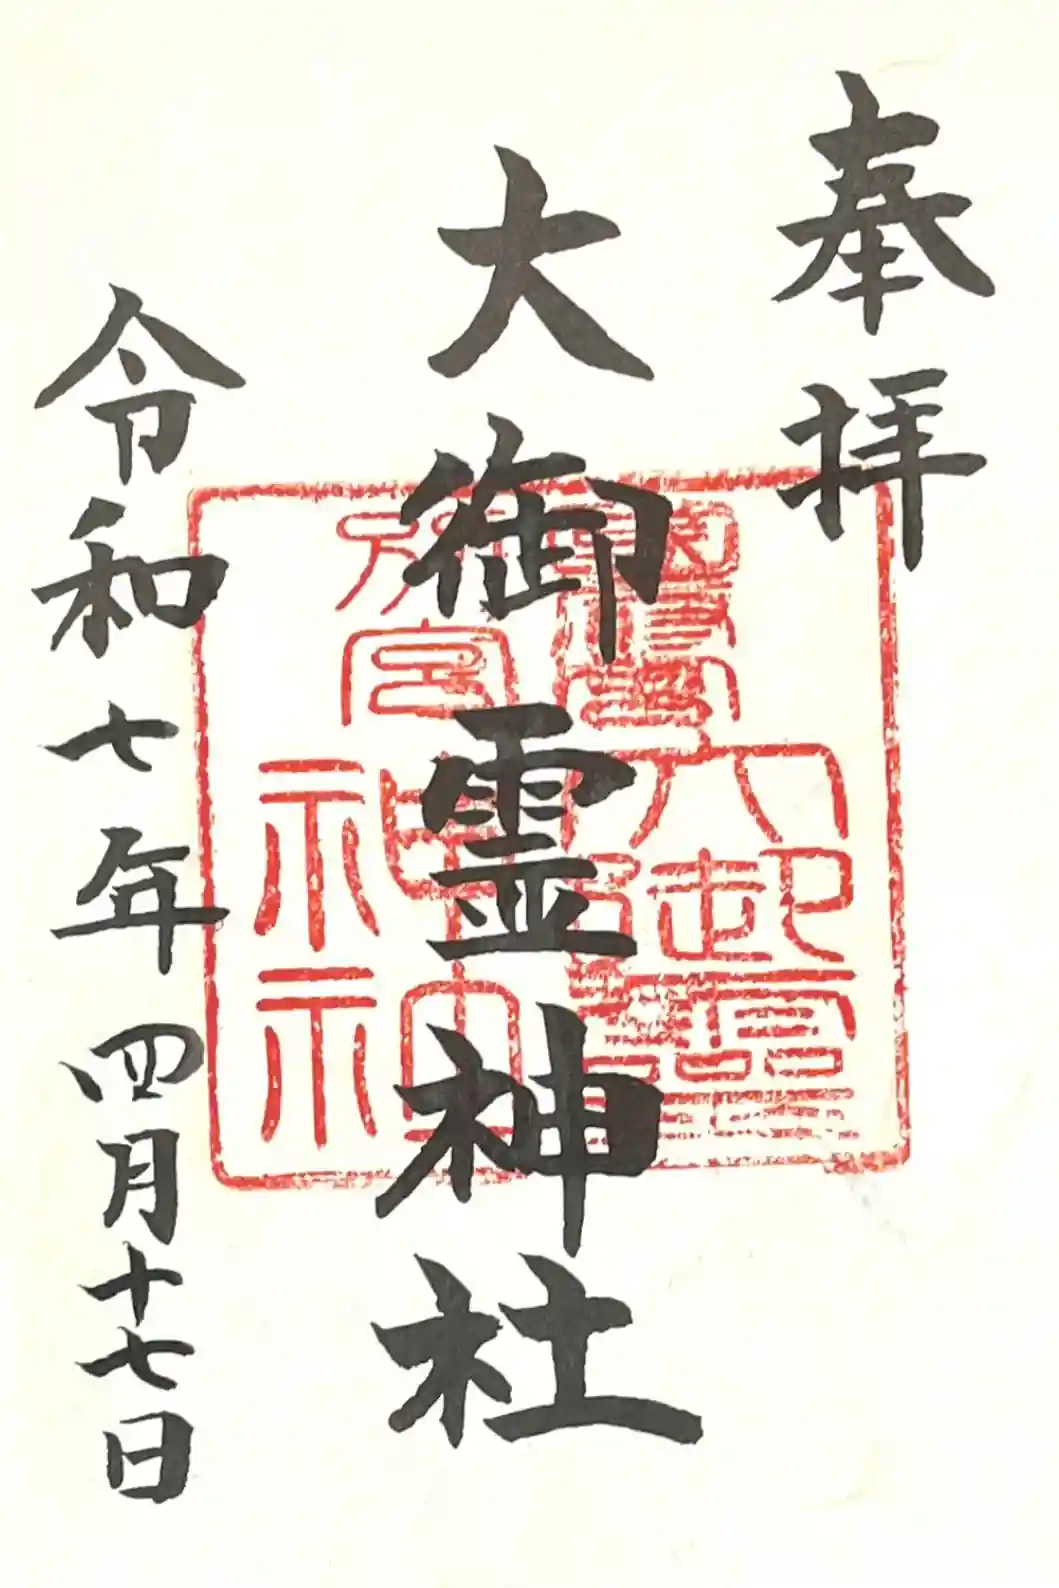 奉拝
大御霊神社
令和七年四月十七日